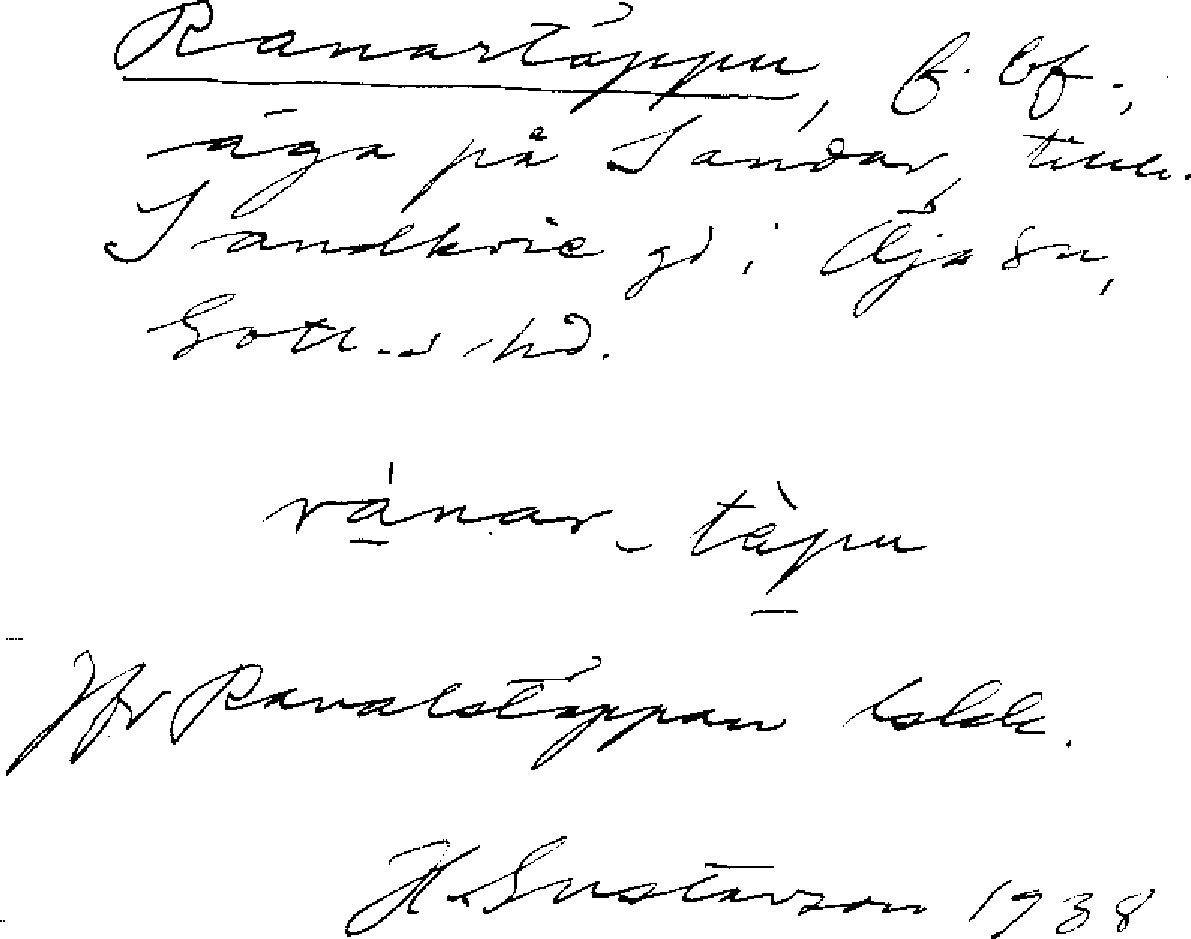 Ranartäppu, f. bf.,
äga på Sandar, tillh.
Sandkvie gd i Öja sn,
Gotl. s. hd.
ránar-tàpu
Jfr Ranalstäppan
H. Gustavson 1938